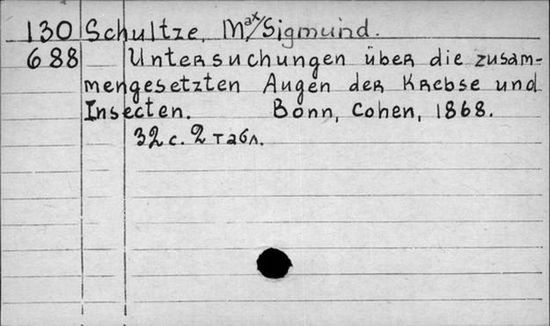 130 Schultze, Max/Sigmund.
688 Untersuchungen über die zusam-
mengesetzten Augen der Krebse und
Insecten. Bonn, Cohen, 1868.
32 с. 2 табл.